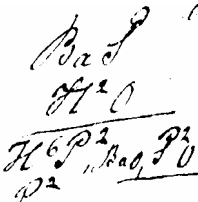 Ba P
H² O
H⁶P², BaO, P²O
P²